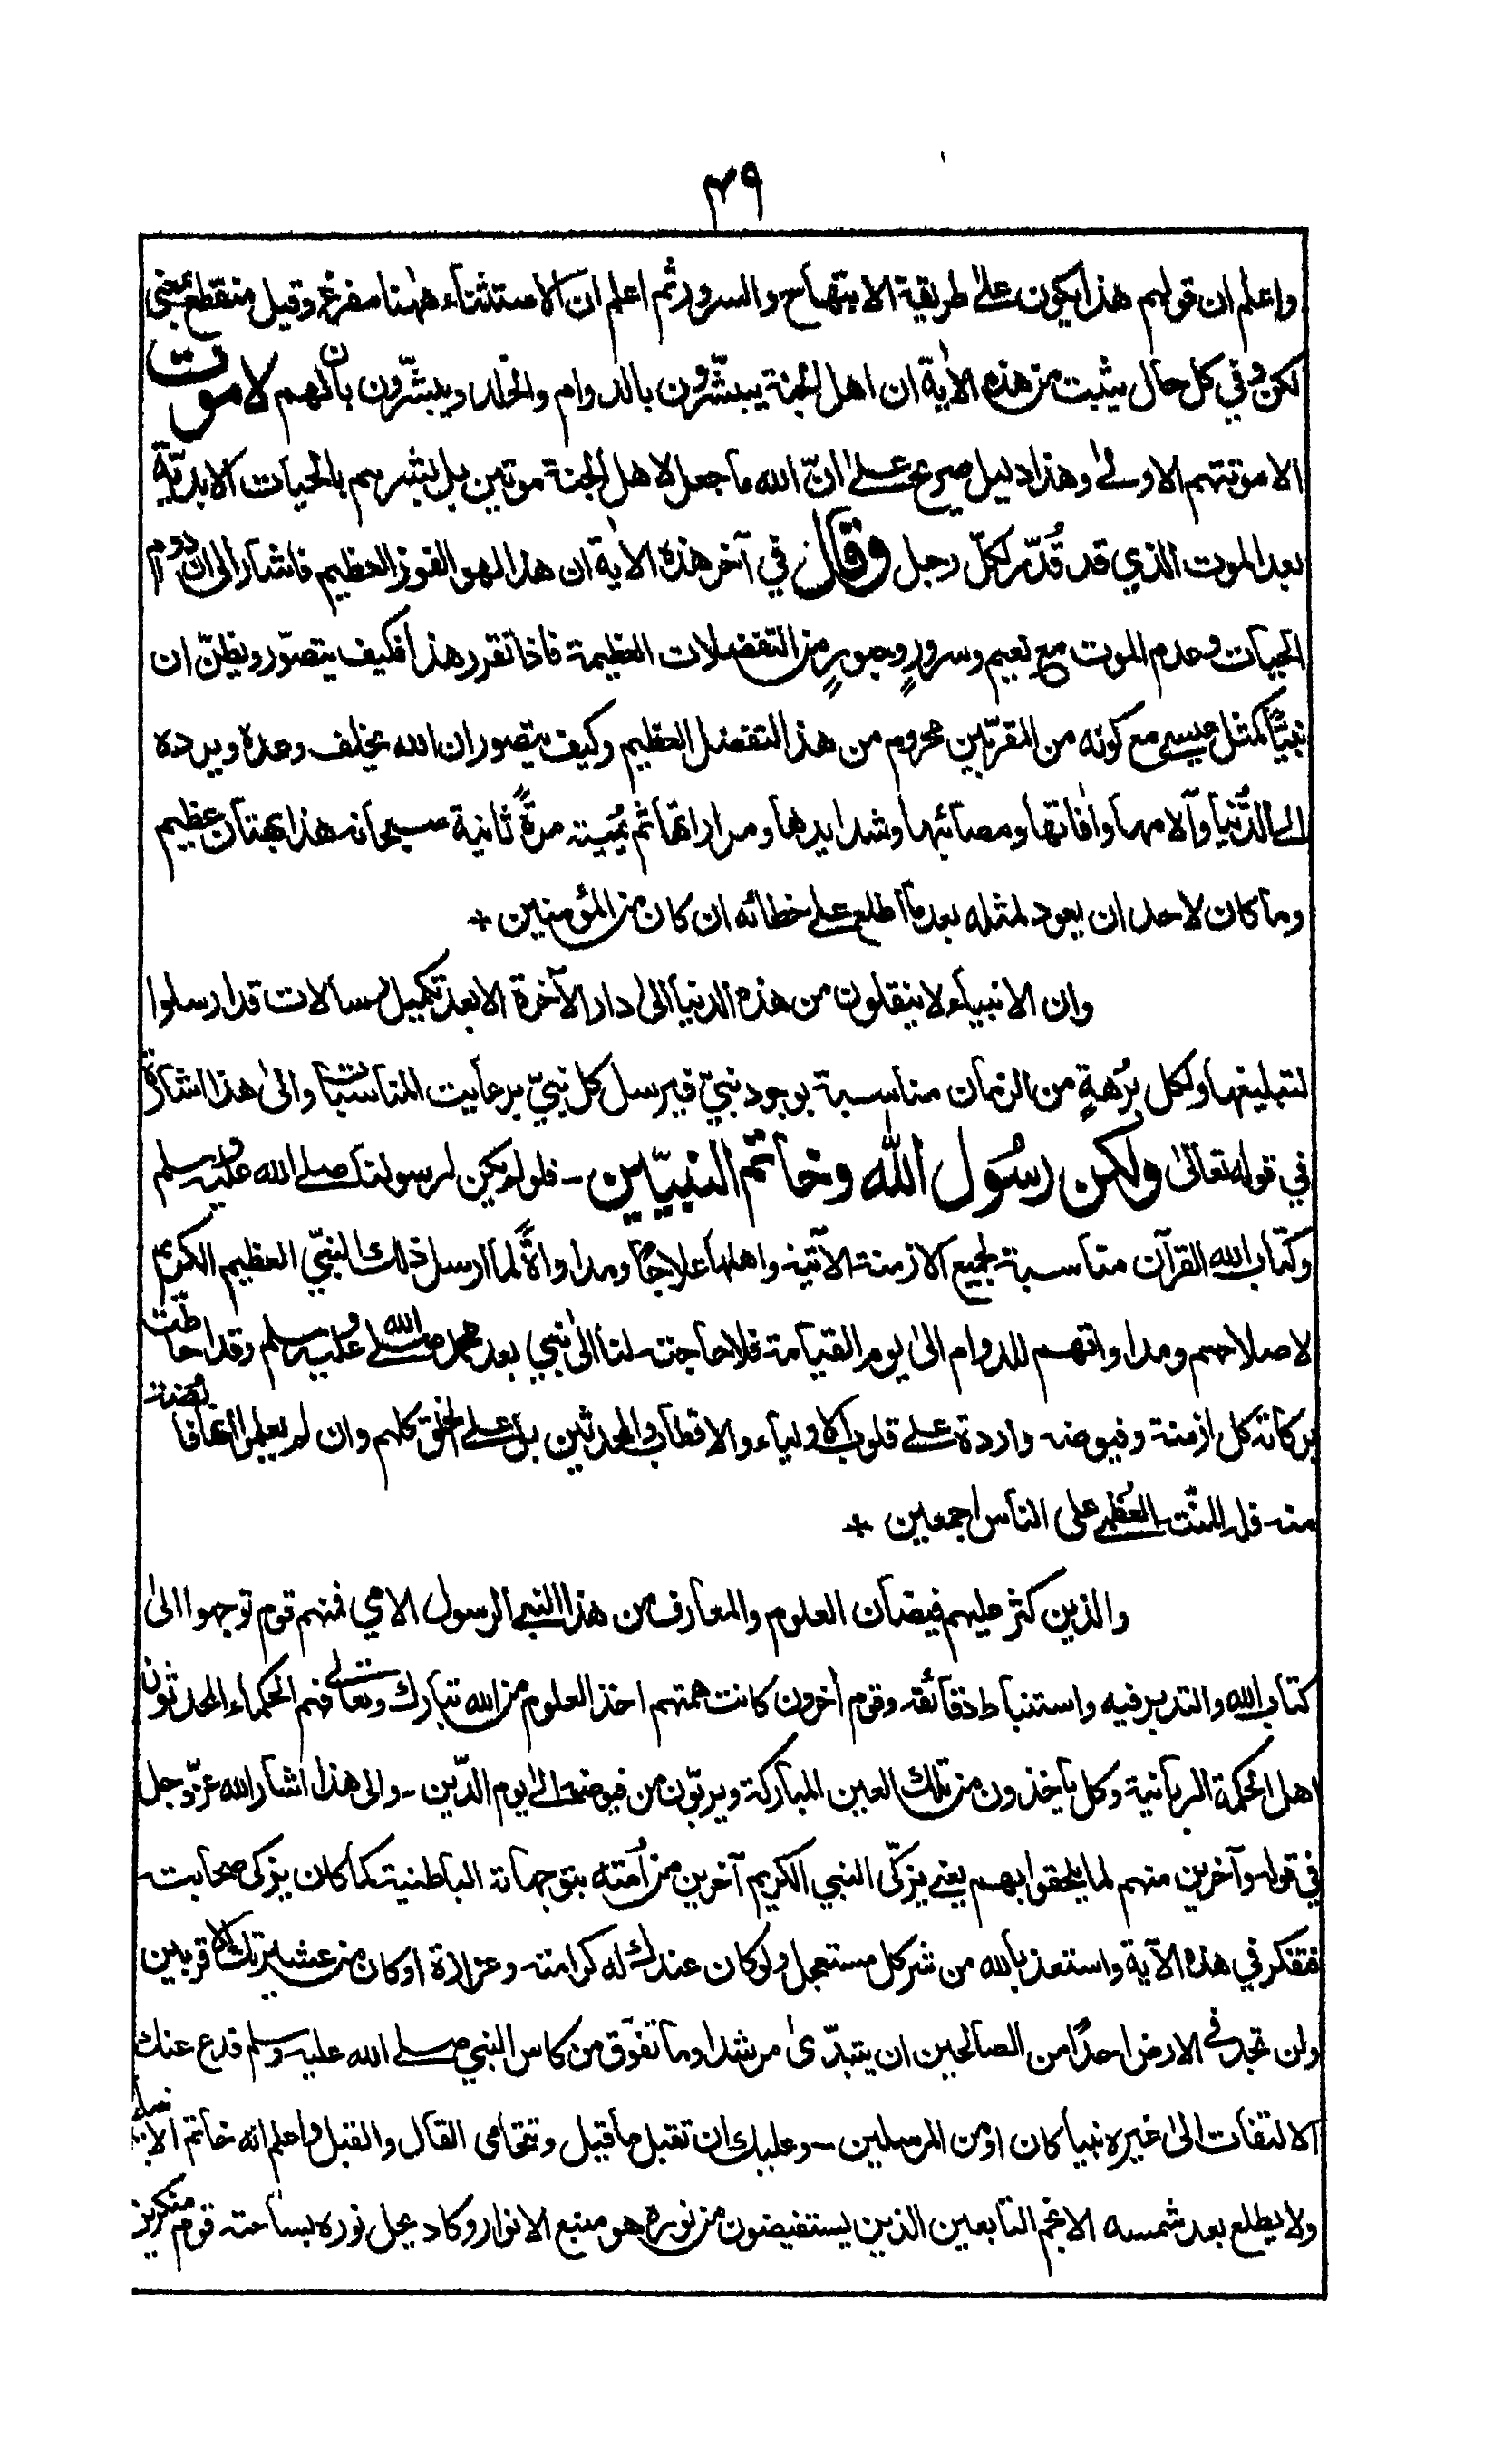 ٤٩
واعلم ان قولهم هذا يكون على طريقة الابتهاج والسرور ثم اعلم ان الاستثناء ههنا مفرغ وقيل منقطع بمعنى
لكن وفي كل حال يثبت من هذه الاٰية ان اهل الجنة يبشّرون بالدوام والخلد ويبشّرون بان لهم لا موت
الا موتتهم الاولى وهذا دليل صريح على انّ الله ما جعل لاهل الجنة موتين بل بشرهم بالحيات الابديّة
بعد الموت الذي قد قُدّر لكلّ رجل وقال في آخر هذه الاٰية ان هذا لهو الفوز العظيم فاشار الى ان دوام
الحيات وعدم الموت مع نعيم وسرورٍ وحبورٍ من التفضلات العظيمة فاذا تقرر هذا فكيف يتصوّر ويظنّ ان
نبيًّا كمثل عيسى مع كونه من المقرّبين محروم من هذا التفضل العظيم وكيف يتصور ان الله يخلف وعده ويرده
الى الدُّنيا وآلامها واٰفاتها ومصائبها وشدايدها ومراراتها ثم يُميته مرةً ثانية سبحانه هذا بهتان عظيم
وما كان لاحد ان يعود لمثله بعد ما اطلع على خطائه ان كان من المؤمنين +
وان الانبياء لا ينقلون من هذه الدنيا الى دار الآخرة الا بعد تكميل رسالات قد ارسلوا
لتبليغها ولكل بُرهةٍ من الزمان مناسبة بوجود نبيّ فيرسل كل نبيّ برعايت المناسبات والىٰ هذا اشارة
في قوله تعالىٰ ولكن رسُول الله وخاتَم النبيّين - فلو لم يكن لرسولنا صلى الله عليه وسلم
وكتاب الله القرآن مناسبة لجميع الازمنة الآتية واهلها علاجًا ومداواةً لما ارسل ذلك النبيّ العظيم الكريم
لاصلاحهم ومداواتهم للدوام الىٰ يوم القيامة فلا حاجة لنا الىٰ نبي بعد محمد صلى الله عليه وسلم وقد احاطت
بركاته كل ازمنة وفيوضه واردة على قلوب الاولياء والاقطاب والمحدثين بل على الخلق كلهم وان لم يعلموا انها فائضة
منه فله المنّت العُظمى على الناس اجمعين +
والذين كثر عليهم فيضان العلوم والمعارف من هذا النبى الرسول الامي فمنهم قوم توجهوا الىٰ
كتاب الله والتدبر فيه واستنباط دقائقه وقوم اٰخرون كانت همتهم اخذ العلوم من الله تبارك وتعالى فهم الحكماء المحدثون
اهل الحكمة الربانية وكل ياخذون من تلك العين المباركة ويربّون من فيوضه الى يوم الدّين - والى هذا اشار الله عزّ وجل
في قوله وآخرين منهم لما يلحقوا بهم يعنى يزكّى النبي الكريم آخرين من اُمته بتوجهاته الباطنية كما كان يزكى صحابته
فتفكر في هذه الآية واستعذ بالله من شر كل مستعجل ولو كان عندك له كرامته وعزازة او كان من عشيرتك الاقربين
ولن تجد فى الارض احدًا من الصالحين ان يتبدّىٰ مرشدا وما تفوّق من كاس النبي صلى الله عليه وسلم فدع عنك
الالتفات الىٰ غيره نبيا كان او من المرسلين - وعليك ان تقبل ما قيل وتتحامى القال والقيل واعلم انه خاتم الانبياء
ولا يطلع بعد شمسه الا نجم التابعين الذين يستفيضون من نوره هو منبع الانوار وكاد يحل نوره بساحة قوم منكرين